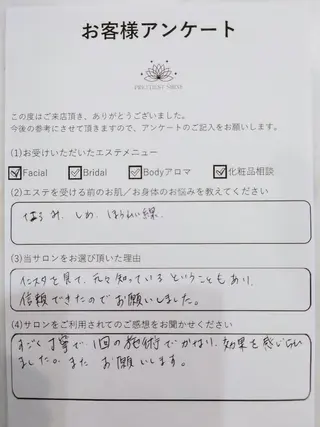 お客様アンケート
この度はご来店頂き、ありがとうございました。
今後の参考にさせて頂きますので、アンケートのご記入をお願いします。
(1)お受けいただいたエステメニュー
Facial Bridal Bodyアロマ 化粧品相談
(2)エステを受ける前のお肌／お身体のお悩みを教えてください
たるみ、しわ、ほうれい線、
(3)当サロンをお選び頂いた理由
インスタを見て、元々知っているということもあり、
信頼できたのでお願いしました。
(4)サロンをご利用されてのご感想をお聞かせください
すごく丁寧で、1回の施術でかなり、効果を感じられ
ました。また お願いします。